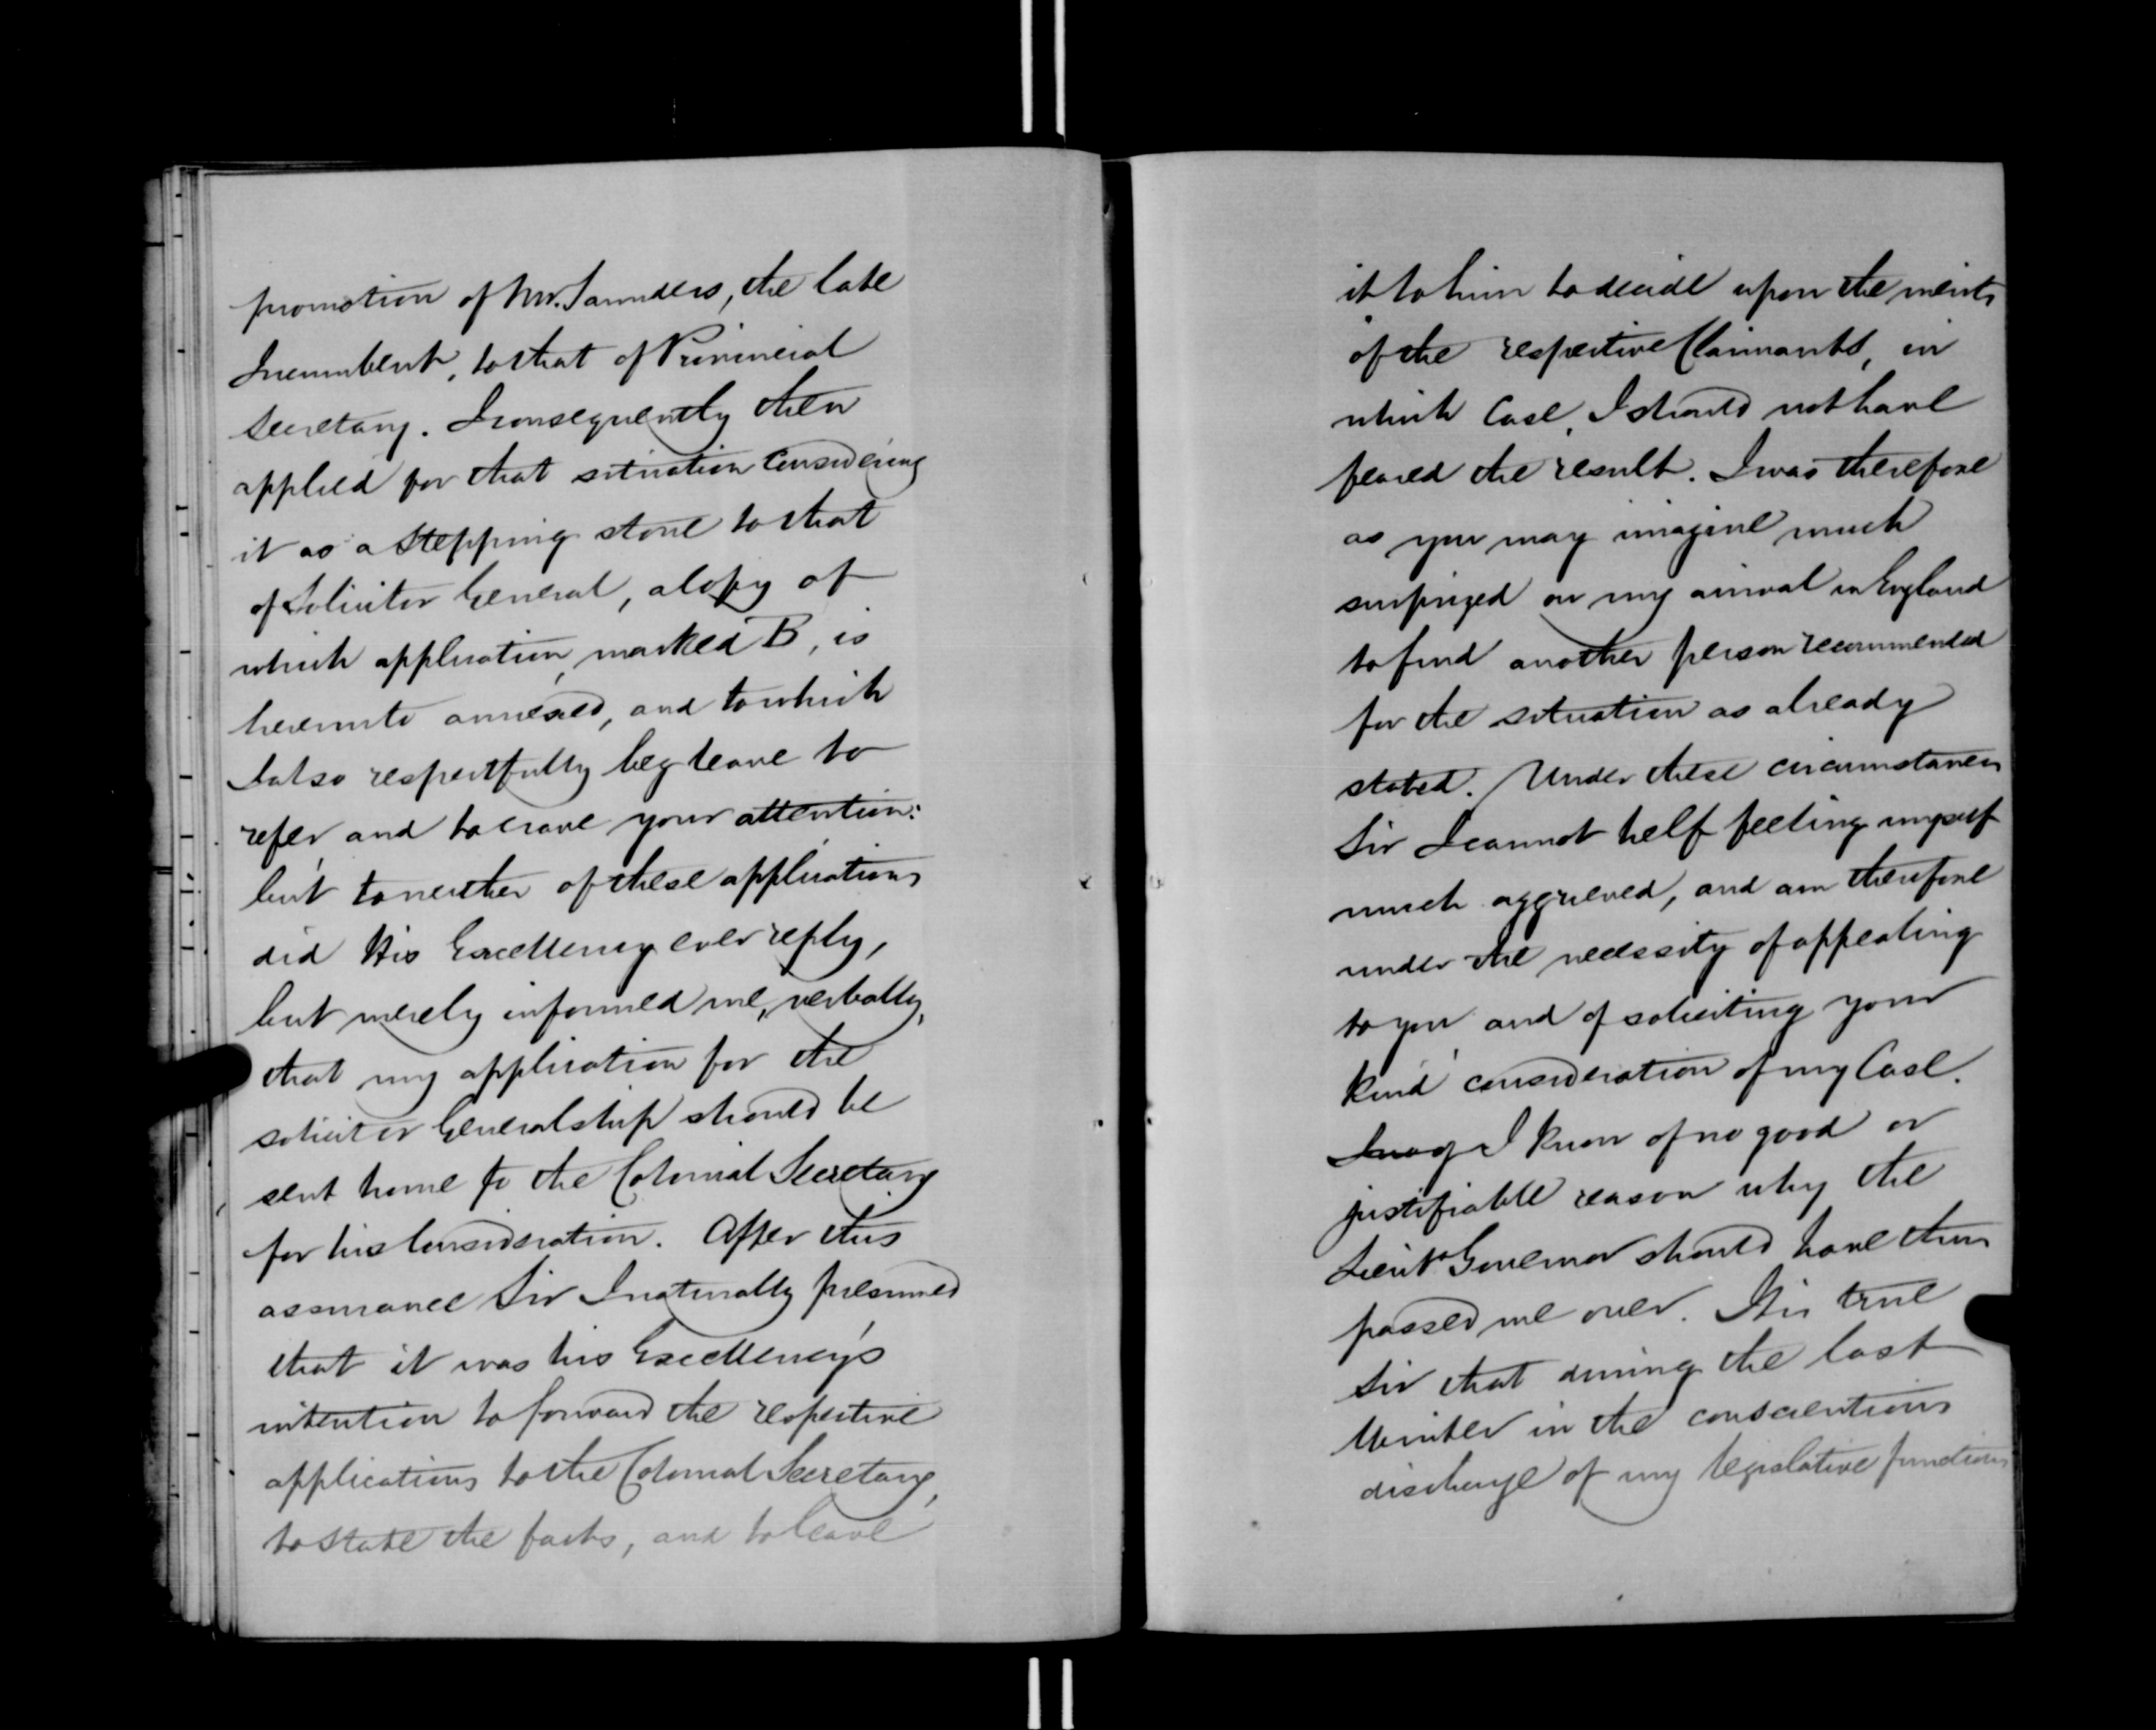 promotion of Mr. Saunders, the late
Incumbent, to that of Provincial
Secretary. I consequently then
applied for that situation Considering
it as a Stepping stone to that
of Solicitor General, a Copy of
which application, marked B, is
hereunto annexed, and to which
I also respectfully beg leave to
refer and to crave your attention:
but to neither of these applications
did His Excellency ever reply,
but merely informed me, verbally,
that my application for the
solicitor Generalship should be
sent home to the Colonial Secretary
for his Consideration. After this
assurance Sir I naturally presumed
that it was his Excellency's
intention to forward the respective
applications to the Colonial Secretary,
to state the facts, and to leave
it to him to decide upon the merits
of the respective Claimants, in
which Case, I should not have
feared the result. I was therefore
as you may imagine much
surprized on my arrival in England
to find another person recommended
for the situation as already
stated. Under these circumstances
Sir I cannot help feeling myself
much aggrieved, and am therefore
under the necessity of appealing
to you and of soliciting your
kind consideration of my Case.
I know of no good or
justifiable reason why the
Lieut Governor should have thus
passed me over. It is true
Sir that during the last
Winter in the conscientious
discharge of my legislative functions